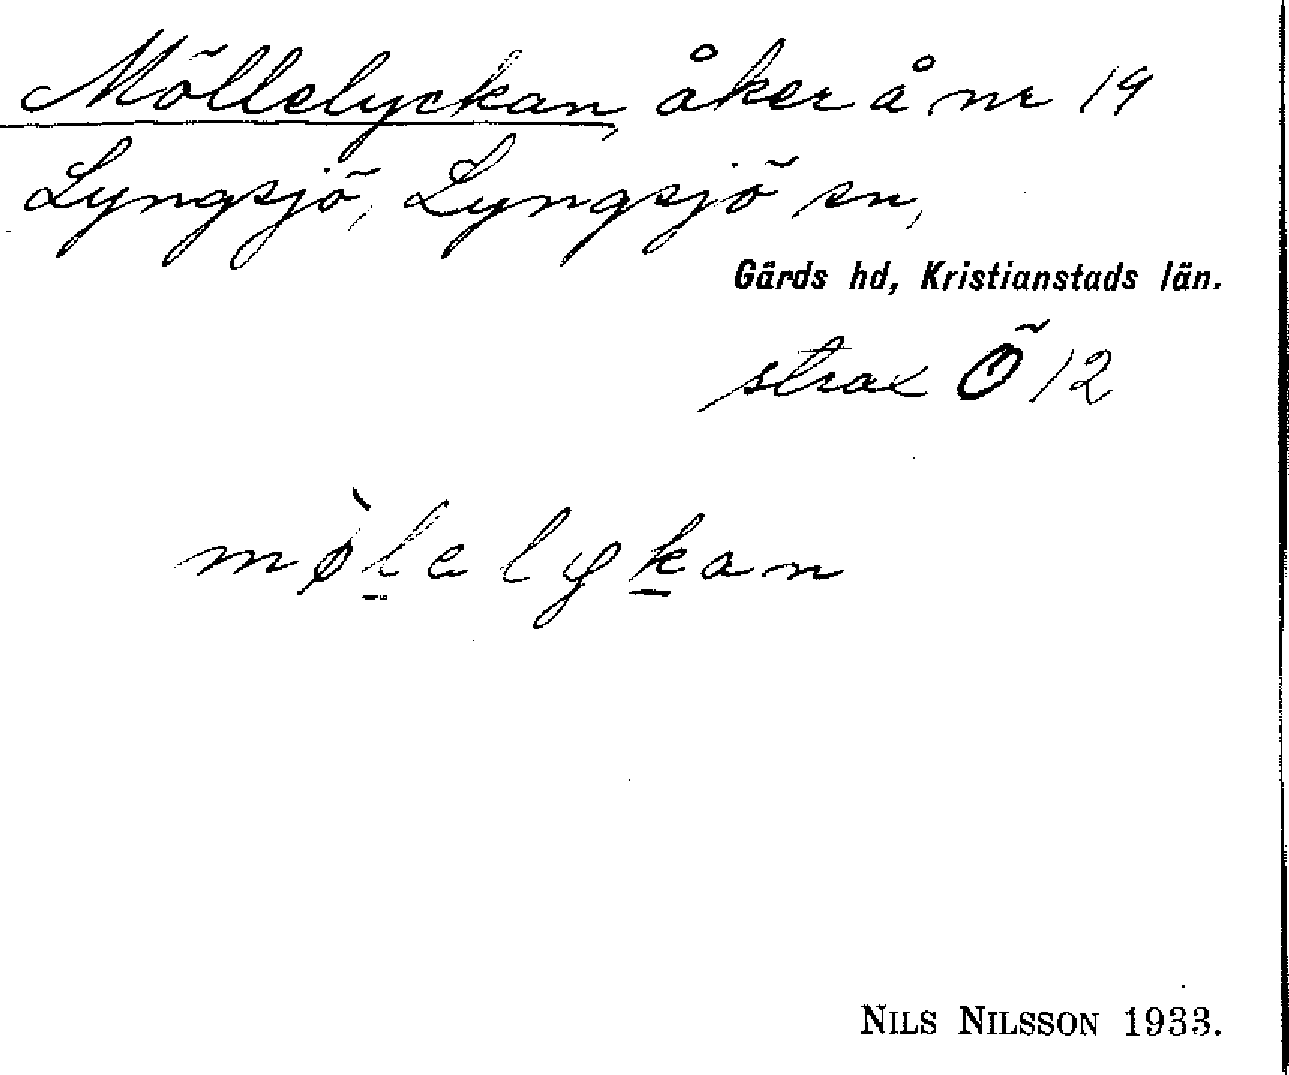 Möllelyckan, åker å nr 19
Lyngsjö, Lyngsjö sn,
Gärds hd, Kristianstads län.
strax Ö 12
mø̀l̲elyk̲an
NILS NILSSON 1933.